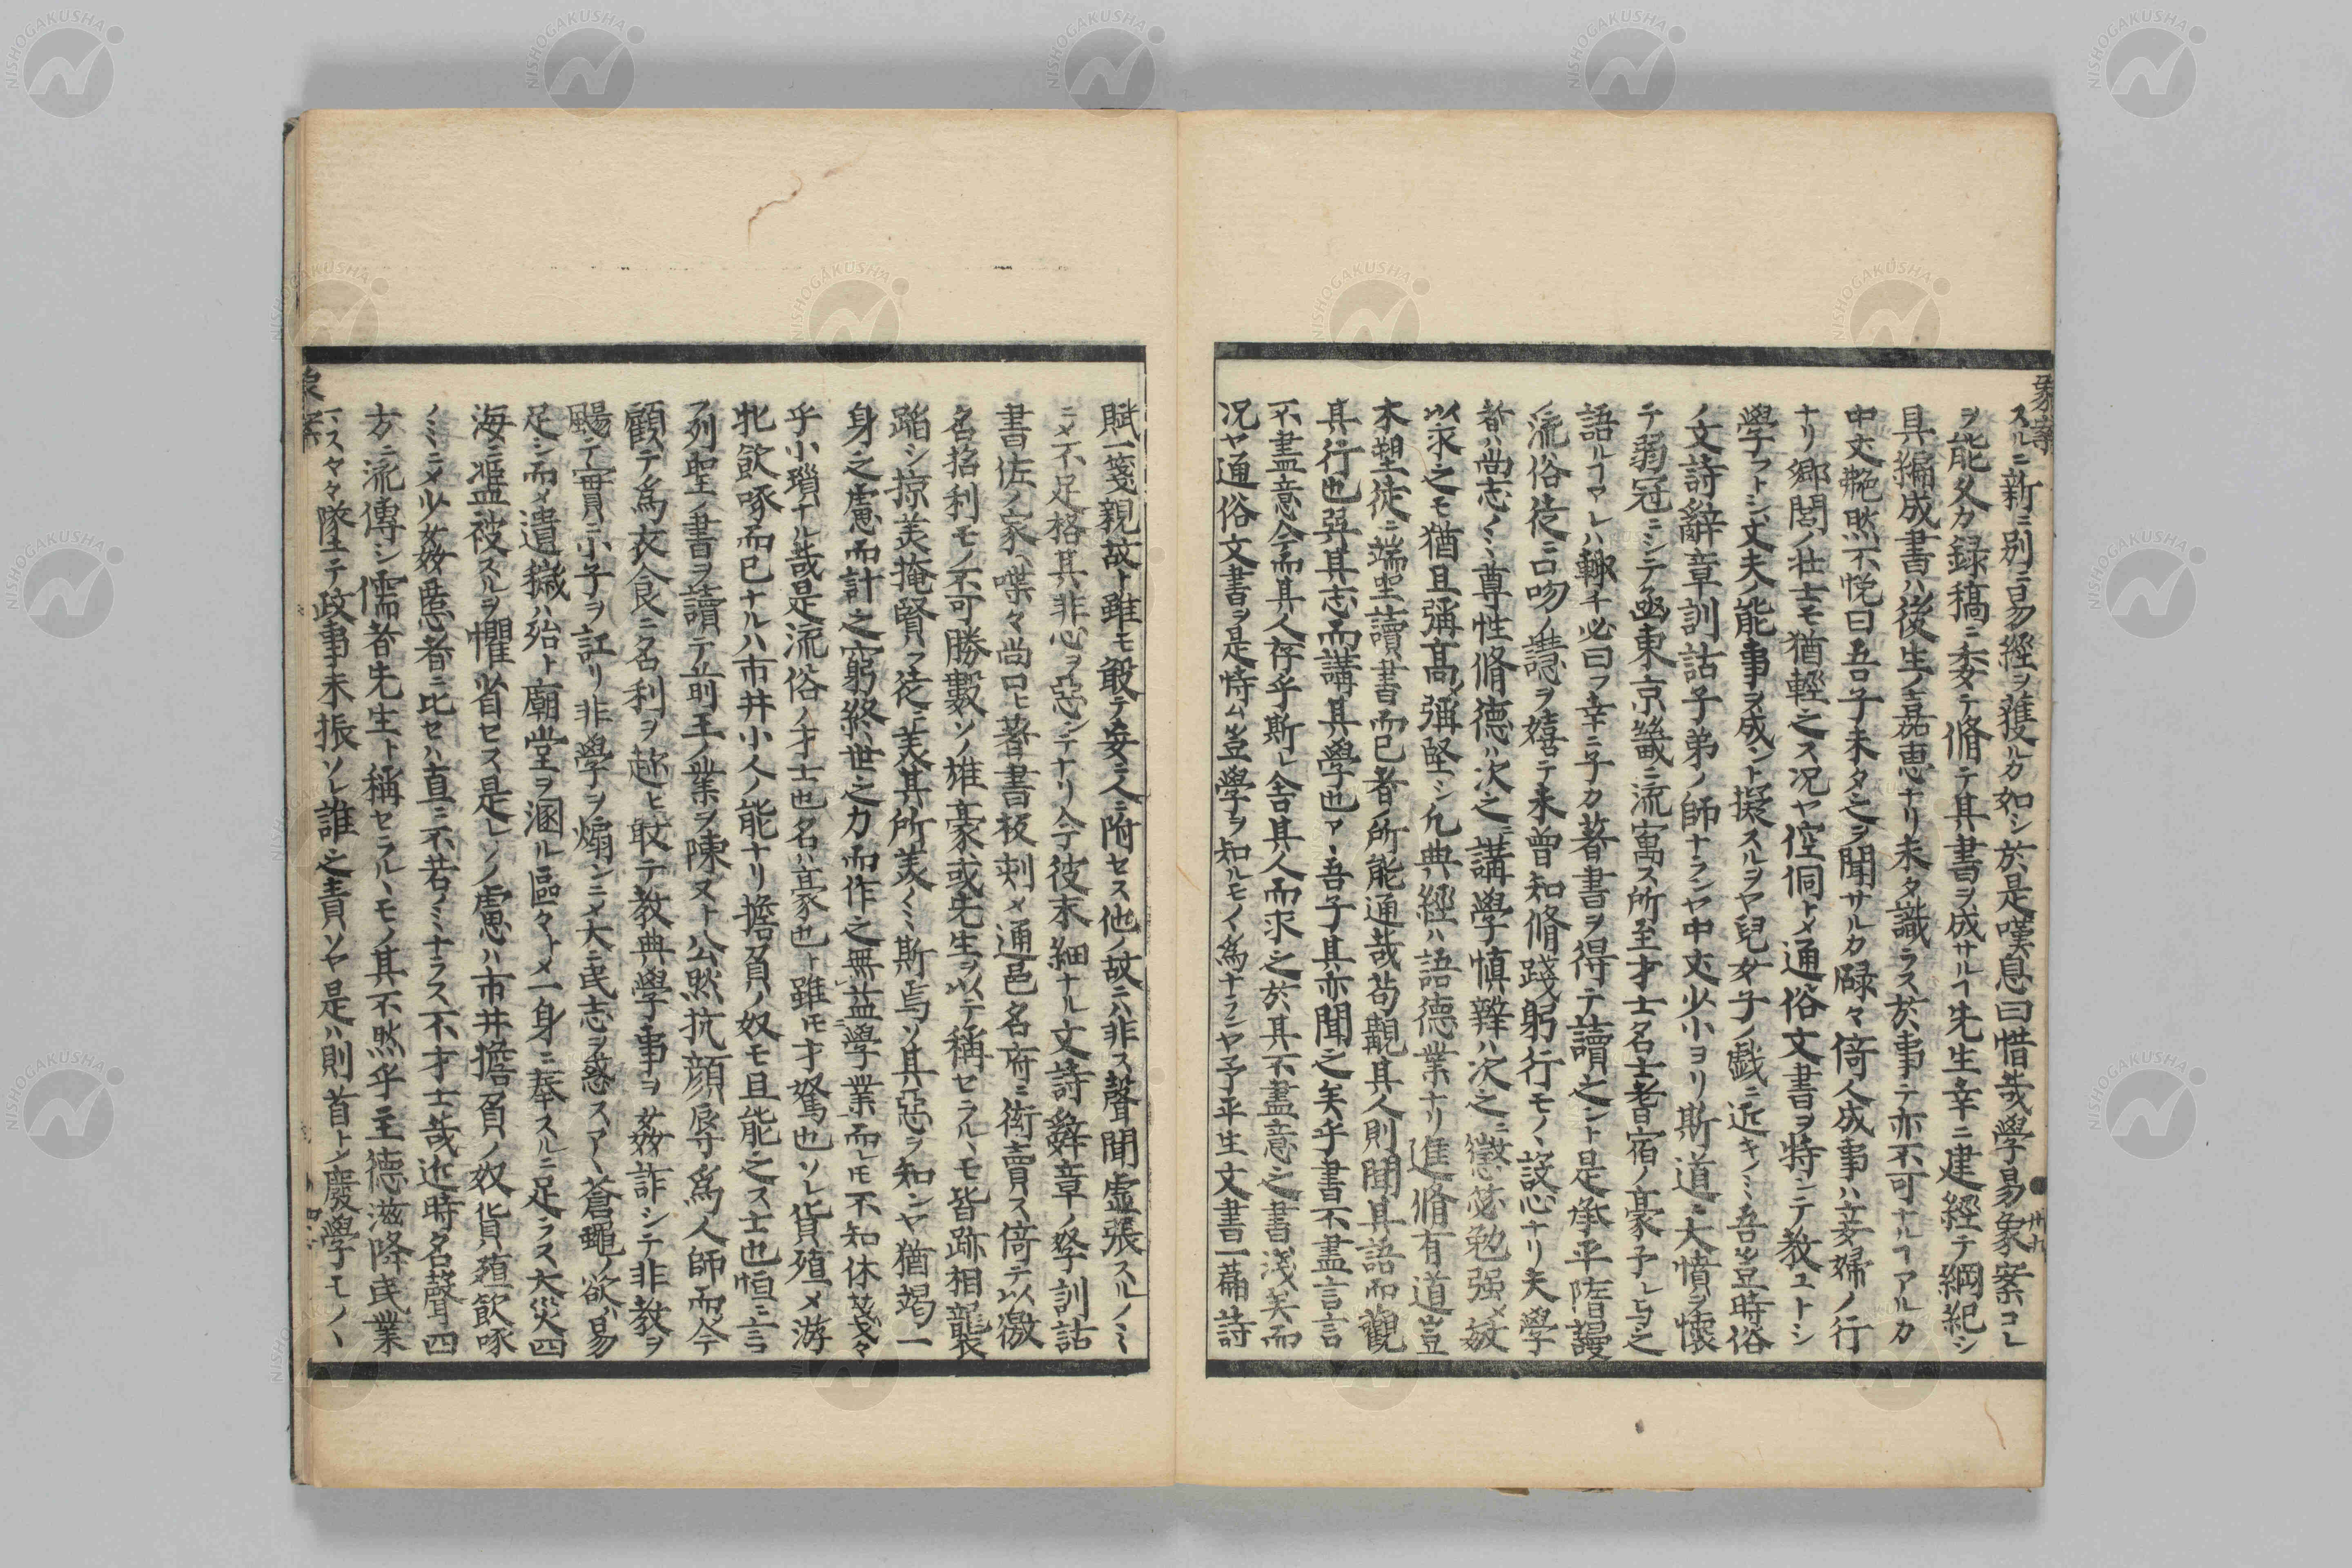 スルニ新ニ別ニ易經ヲ獲ルカ如シ於是嘆息曰惜哉學易象案コレ
ヲ能久カ録稿ニ委テ脩テ其書ヲ成サルヿ先生幸ニ建經テ綱紀シ
具編成書ハ後生ノ嘉恵ナリ未タ識ラス於事テ亦不可ナルヿアルカ
中丈艴然不悦曰吾子未タ之ヲ聞サルカ碌々倚人成事ハ妾婦ノ行
ナリ郷閭ノ壮士モ猶輕之ス况ヤ倥侗トメ通俗文書ヲ恃ンテ教ユトシ
學フトシ丈夫ノ能事ヲ成ント擬スルヲヤ兒女子ノ戯ニ近キノミ吾豈時俗
ノ文詩辭章訓詁子弟ノ師ナランヤ中丈少小ヨリ斯道ニ大憤ヲ懷
テ弱冠ニシテ亟東京畿ニ流寓ス所至才士名士老宿ノ豪予レ之
語ルヿアレハ輙チ必曰フ幸ニ子カ著書ヲ得テ讀之ント是承平階謾
ノ流俗徒ニ口吻ノ慧ヲ嬉テ未曾知脩踐躬行モノヽ設心ナリ夫學
者ハ尚志ノミ尊性脩德ハ次之ニ講學愼辨ハ次之ニ懲忿勉强メ敏
以求之モ猶且彌高ノ彌堅シ凢典經ハ語德業ナリ進脩有道豈
木塑徒ニ端坐讀書而已者ノ所能通哉苟觀其人則聞其語而觀
其行也與其志而講其學也アヽ吾子其亦聞之矣乎書不盡言言
不盡意今而其人存乎斯レ舎其人而求之於其不盡意之書淺矣而
况ヤ通俗文書ヲ是恃ム豈學ヲ知ルモノヽ爲ナランヤ予平生文書一篇詩
賦一箋親故ト雖モ敢テ妄ニ人ニ附セス他ノ故ニハ非ス聲聞虚張スルノミ
ニメ不足格其非心ヲ惡ンテナリ今彼末細ナル文詩辭章ノ學訓詁
書佐ノ家喋々尚口モ著書板刺メ通邑名府ニ衒賣ス倚テ以徼
名招利モノ不可勝數ソノ雄豪或先生ヲ以テ稱セラルヽモ皆跡相襲
蹈シ掠美掩賢フ徒ニ美其所美ノミ斯焉ソ其惡ヲ知ンヤ猶竭一
身之慮而計之窮終世之力而作之無益學業而レモ不知休戔々
乎小瑣ナル哉是流俗ノ才士也名ハ豪也ト雖モ才駑也ソレ貨殖メ游
牝飲啄而已ナルハ市井小人ノ能ナリ擔負ノ奴モ且能之ス士也恒ニ言
ヲ列聖ノ書ヲ讀テ前王ノ業ヲ陳ヌト公然抗顔辱爲人師而今
顧テ爲衣食ニ名利ヲ趂ヒ敢テ教典學事ヲ姦詐シテ非教ヲ
颺テ實ニ小子ヲ誑リ非學ヲ煽ンニメ大ニ民志ヲ惑スアヽ蒼蠅ノ欲ハ易
足シ而メ遺穢ハ殆ト廟堂ヲ溷ル區々トメ一身ニ奉スルニ足ラス大災四
海ニ温被スルヲ懼省セス是レソノ慮ハ市井擔負ノ奴貨殖飲啄
ノミニメ少姦慝者ニ比セハ直ニ不若ノミナラス不才士哉近時名聲四
方ニ流傳シ儒者先生ト稱セラルヽモノ其不然乎主德滋降民業
マスマス墜テ政事未振ソレ誰之責ソヤ是ハ則首トシ廢學モノヽ